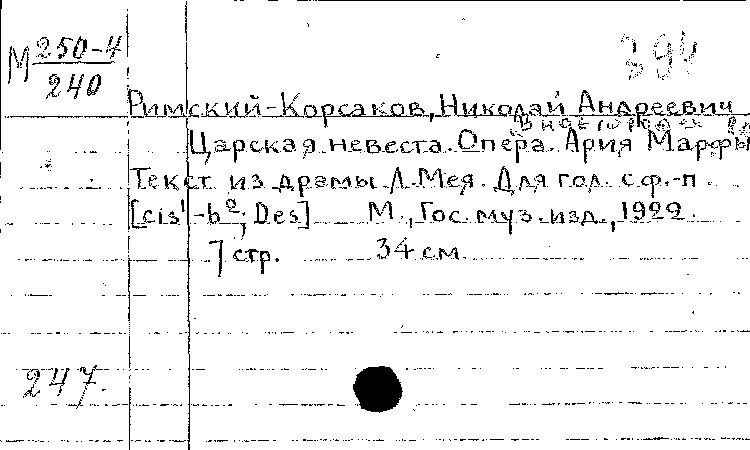 М 250-4
240
394
Римский-Корсаков, Николай Андреевич
Царская невеста. Опера. Ария Марфы
Текст из драмы Л. Мея. Для гол. с ф.-п.
[cis¹-b²; Des] М., Гос. муз. изд., 1922.
7 стр. 34 см
247.